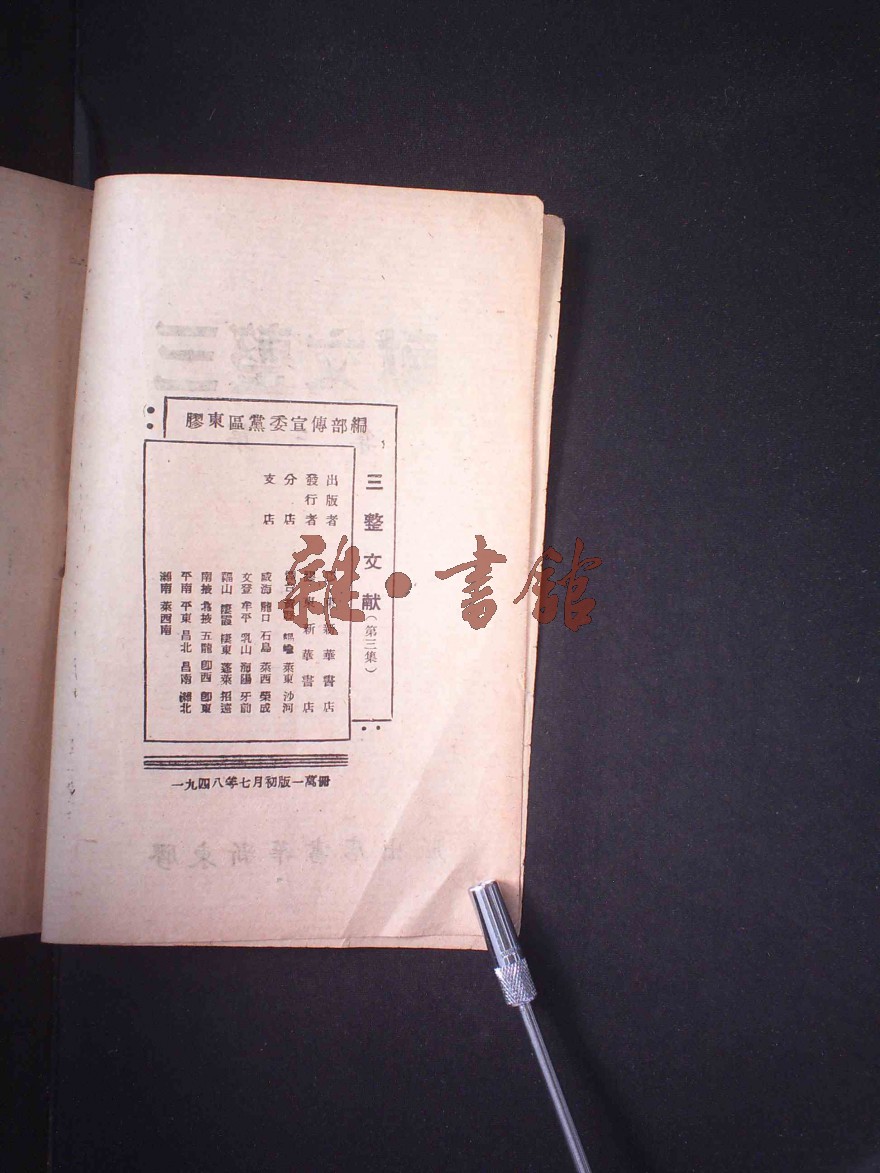 膠東區黨委宣傳部編
三整文献(第三集)
出版者 新華書店
發行者 東新華書店
分店 崐嵛 萊東 沙河
支店 威海 龍口 石島 萊西 榮成
文登 牟平 乳山 海陽 牙前
福山 棲霞 棲東 蓬萊 招遠
南掖 北掖 五龍 即西 即東
平南 平東 昌北 昌南 濰北
濰南 萊西南
一九四八年七月初版一萬冊
雜·書館
三整文献
膠東新華書店出版